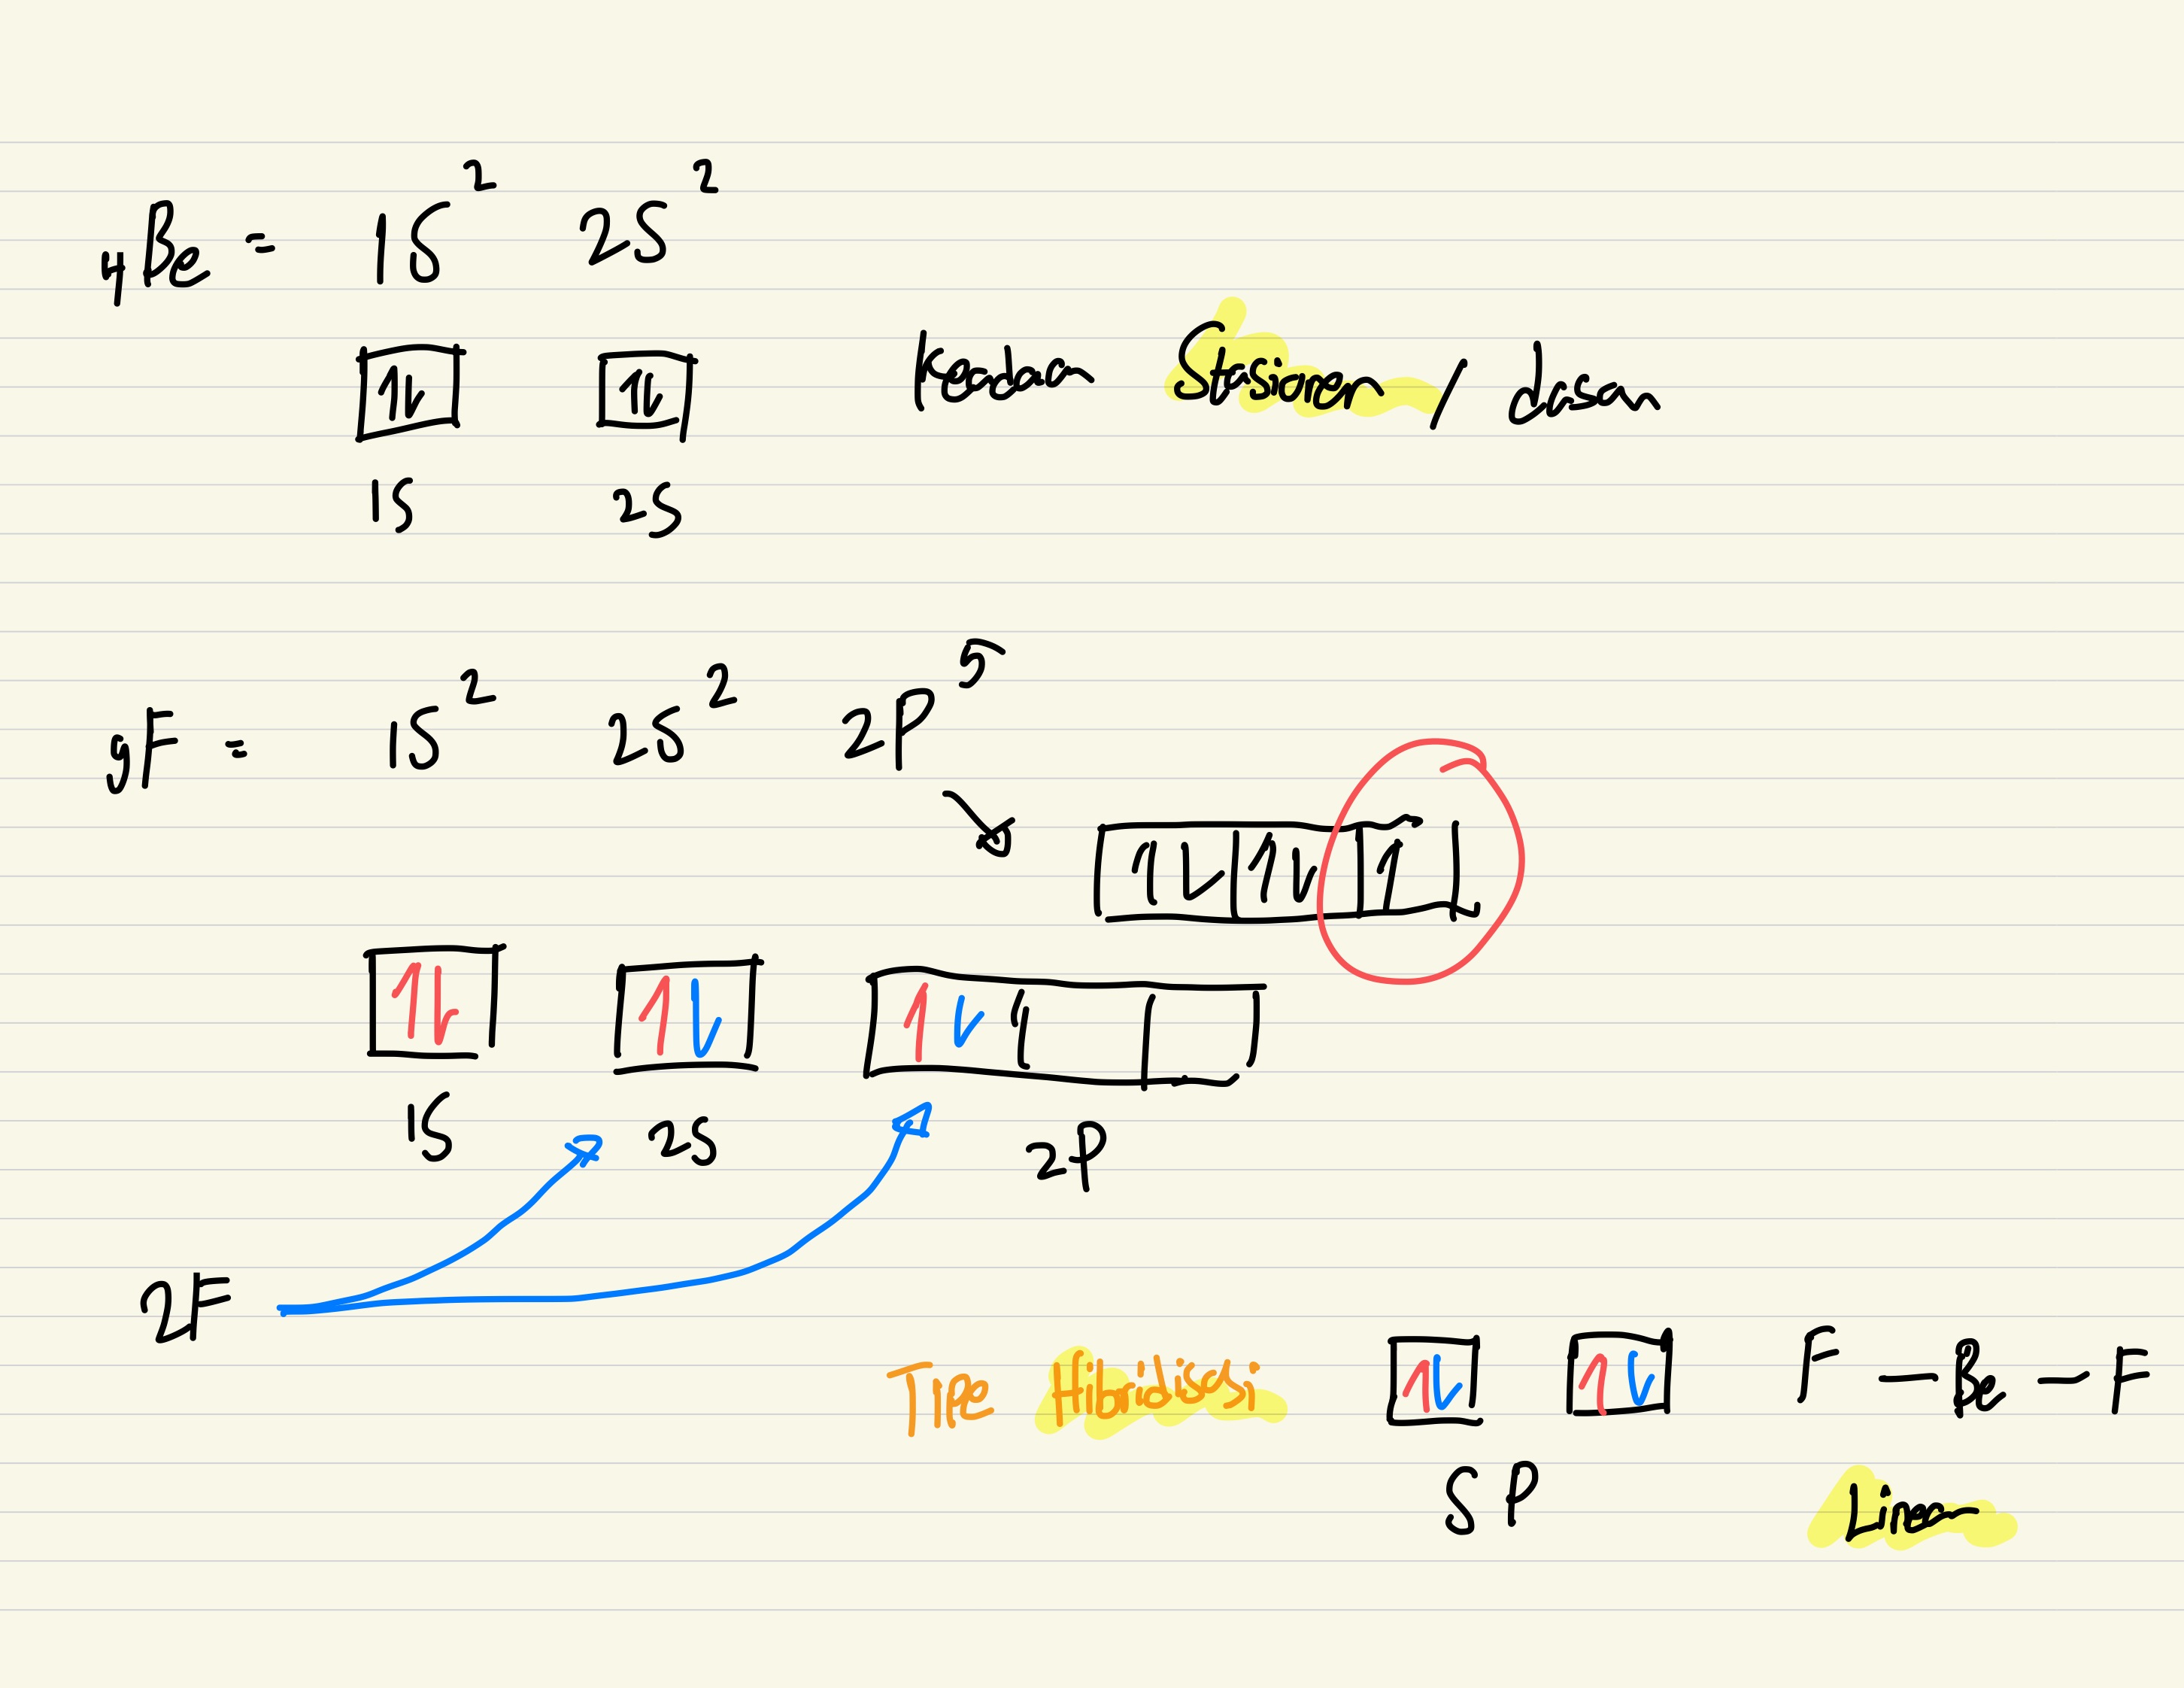 4Be = 1s² 2s²
↑↓ ↑↓ Keadaan Stasioner / dasar
1s 2s
9F = 1s² 2s² 2p⁵
↑↓ ↑↓ ↑
↑↓ ↑↓ ↑↓ 1
1s 2s 2p
2F
Tipe Hibridisasi ↑↓ ↑↓ F - Be - F
SP Linear